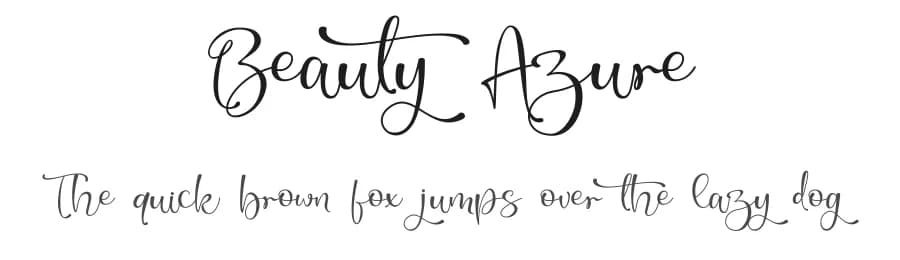 Beauty Azure
The quick brown fox jumps over the lazy dog